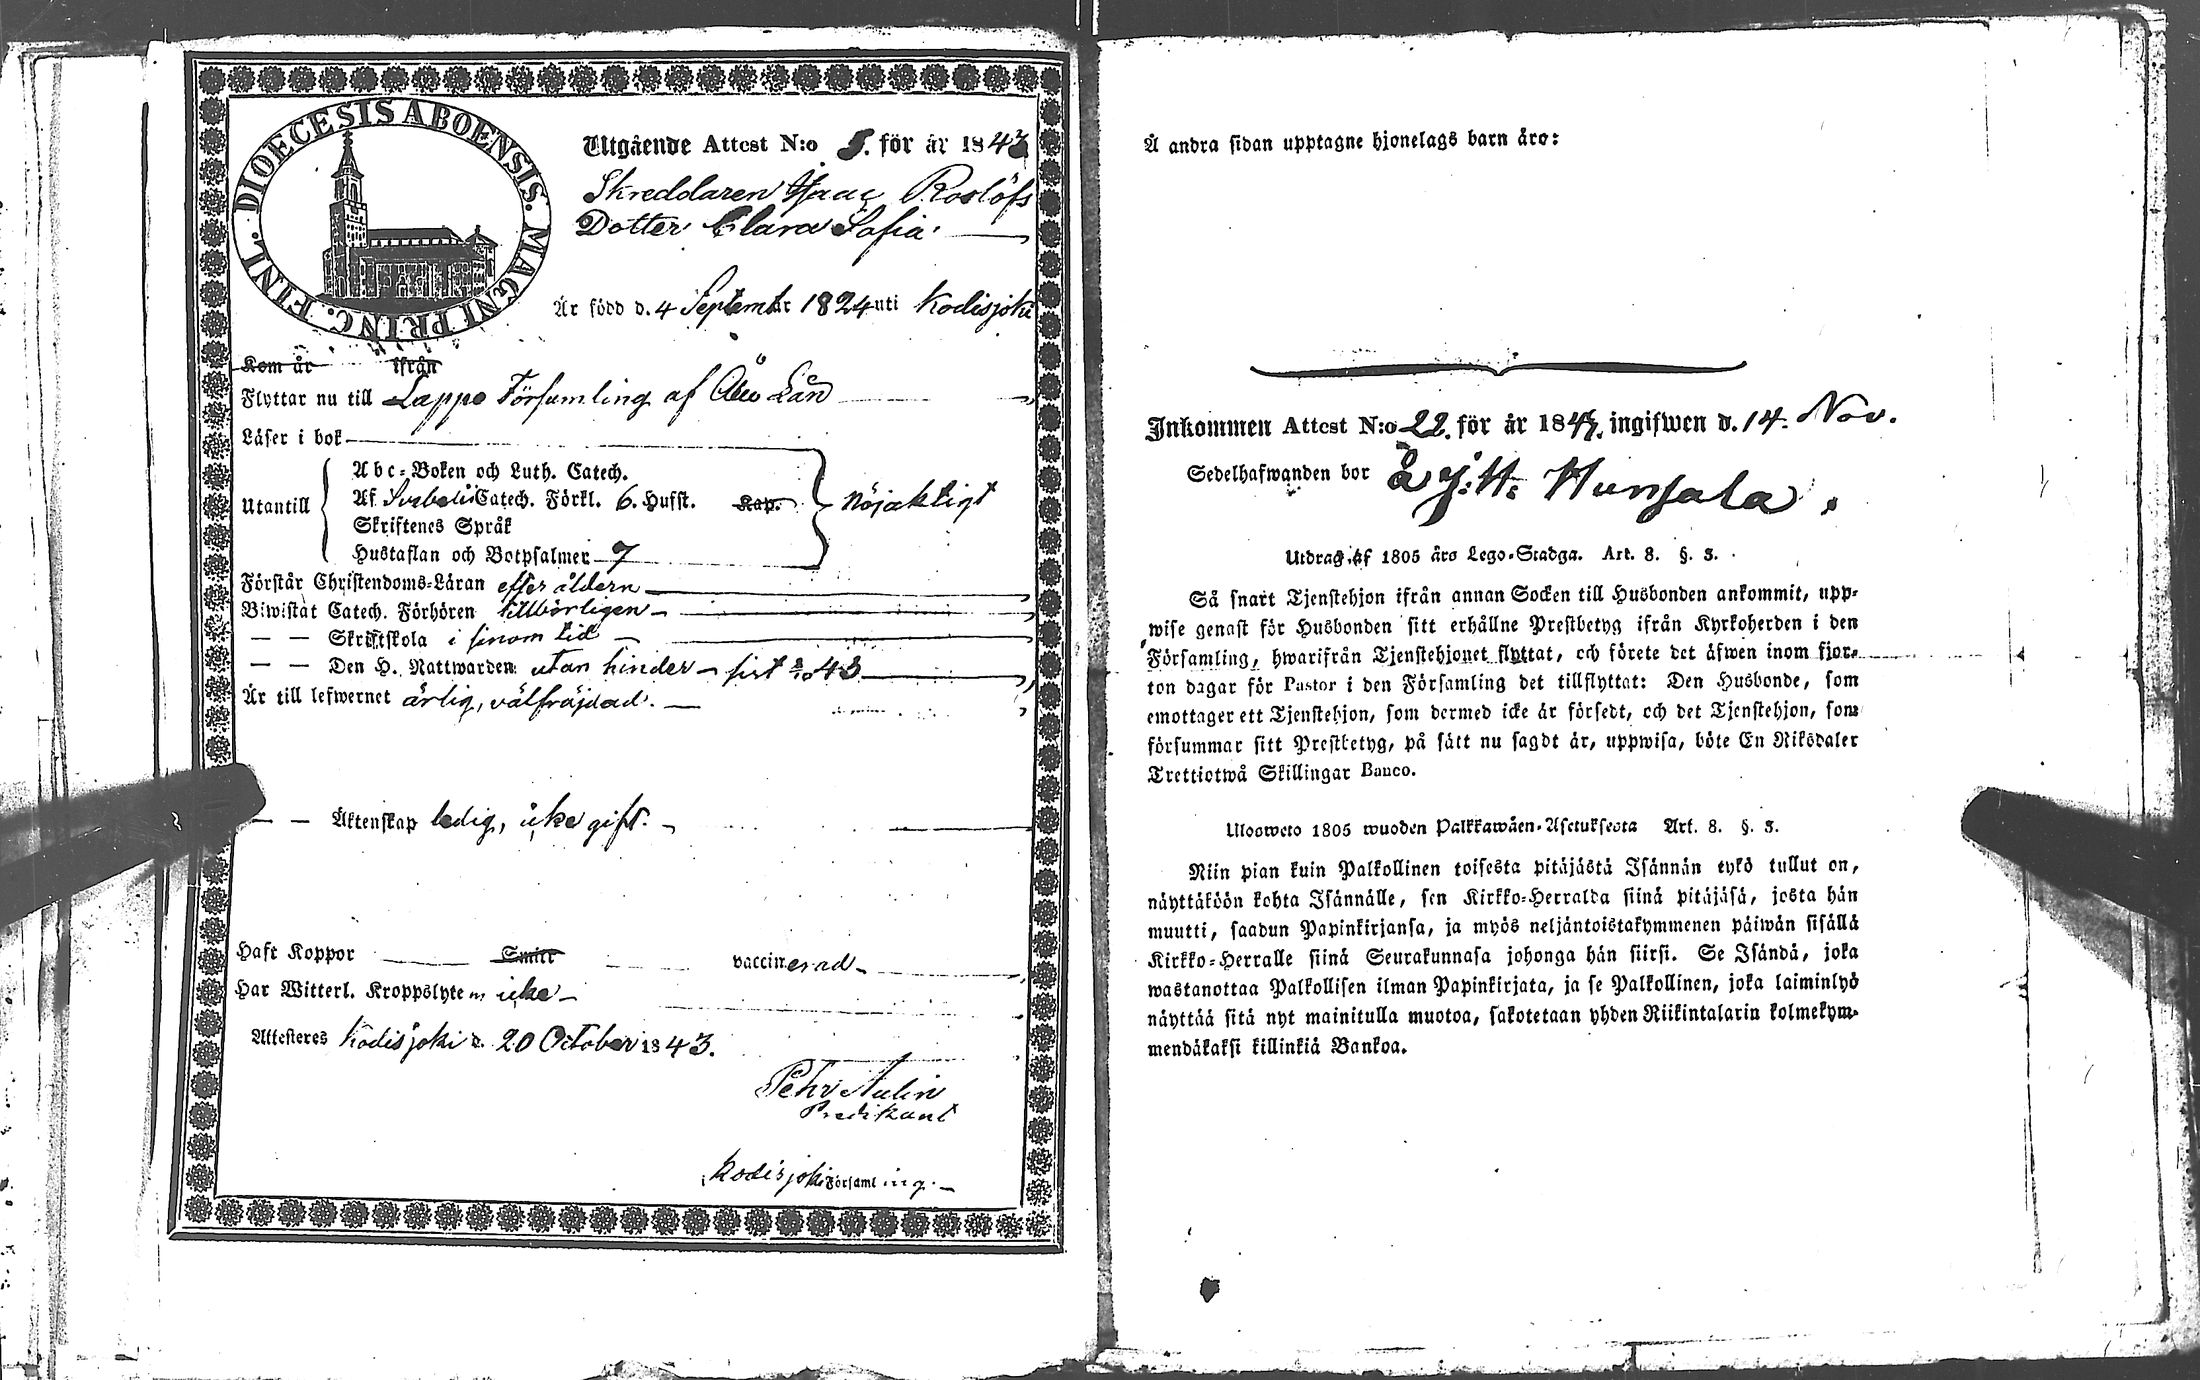 DIOECESIS ABOENSIS. MAGNI PRINC. FINL.
Utgående Attest N:o 5. för år 1843
Skreddaren Isaac Roslöfs
Dotter Clara Sofia.
Är född d. 4 Septembr 1824 uti Kodisjoki
Kom år ifrån
Flyttar nu till Lappo Församling af Åbo Län
Läser i bok
Utantill
Abc-Boken och Luth. Catech.
Af Svebelii Catech. Förkl. 6. Hufst. Kap.
Skriftenes Språk
Hustaflan och Botpsalmer 7
nöjaktigt
Förstår Christendoms-Läran efter åldern
Biwistat Catech. Förhören tillbörligen
— — Skriftskola i sinom tid
— — Den H. Nattwarden utan hinder – sist 43
Är till lefwernet ärlig, välfräjdad.
— — Äktenskap ledig, icke gift.
Haft Koppor Smitt vaccinerad
Har Witterl. Kroppslyten icke
Attesteres Kodisjoki d. 20 October 1843.
Pehr Aulin
Predikant
i Kodisjoki Församling.
Å andra sidan upptagne hjonelags barn äro:
Inkommen Attest N:o 22. för år 1843. ingifwen d. 14. Nov.
Sedelhafwanden bor å
Utdrag af 1805 års Lego-Stadga. Art. 8. §. 3.
Så snart Tjenstehjon ifrån annan Socken till Husbonden ankommit, upp-
wise genast för Husbonden sitt erhållne Prestbetyg ifrån Kyrkoherden i den
Församling, hwarifrån Tjenstehjonet flyttat, och förete det äfwen inom fjor-
ton dagar för Pastor i den Församling det tillflyttat: Den Husbonde, som
emottager ett Tjenstehjon, som dermed icke är försedt, och det Tjenstehjon, som
försummar sitt Prestbetyg, på sätt nu sagdt är, uppwisa, böte En Riksdaler
Trettiotwå Skillingar Banco.
Ulosweto 1805 wuoden Palkkawäen-Asetuksesta Art. 8. §. 3.
Niin pian kuin Palkollinen toisesta pitäjästä Isännän tykö tullut on,
näyttäköön kohta Isännälle, sen Kirkko-Herralda siinä pitäjäsä, josta hän
muutti, saadun Papinkirjansa, ja myös neljäntoistakymmenen päiwän sisällä
Kirkko-Herralle siinä Seurakunnasa johonga hän siirsi. Se Isändä, joka
wastanottaa Palkollisen ilman Papinkirjata, ja se Palkollinen, joka laiminlyö
näyttää sitä nyt mainitulla muotoa, sakotetaan yhden Riikintalarin kolmekym-
mendäkaksi killinkiä Bankoa.